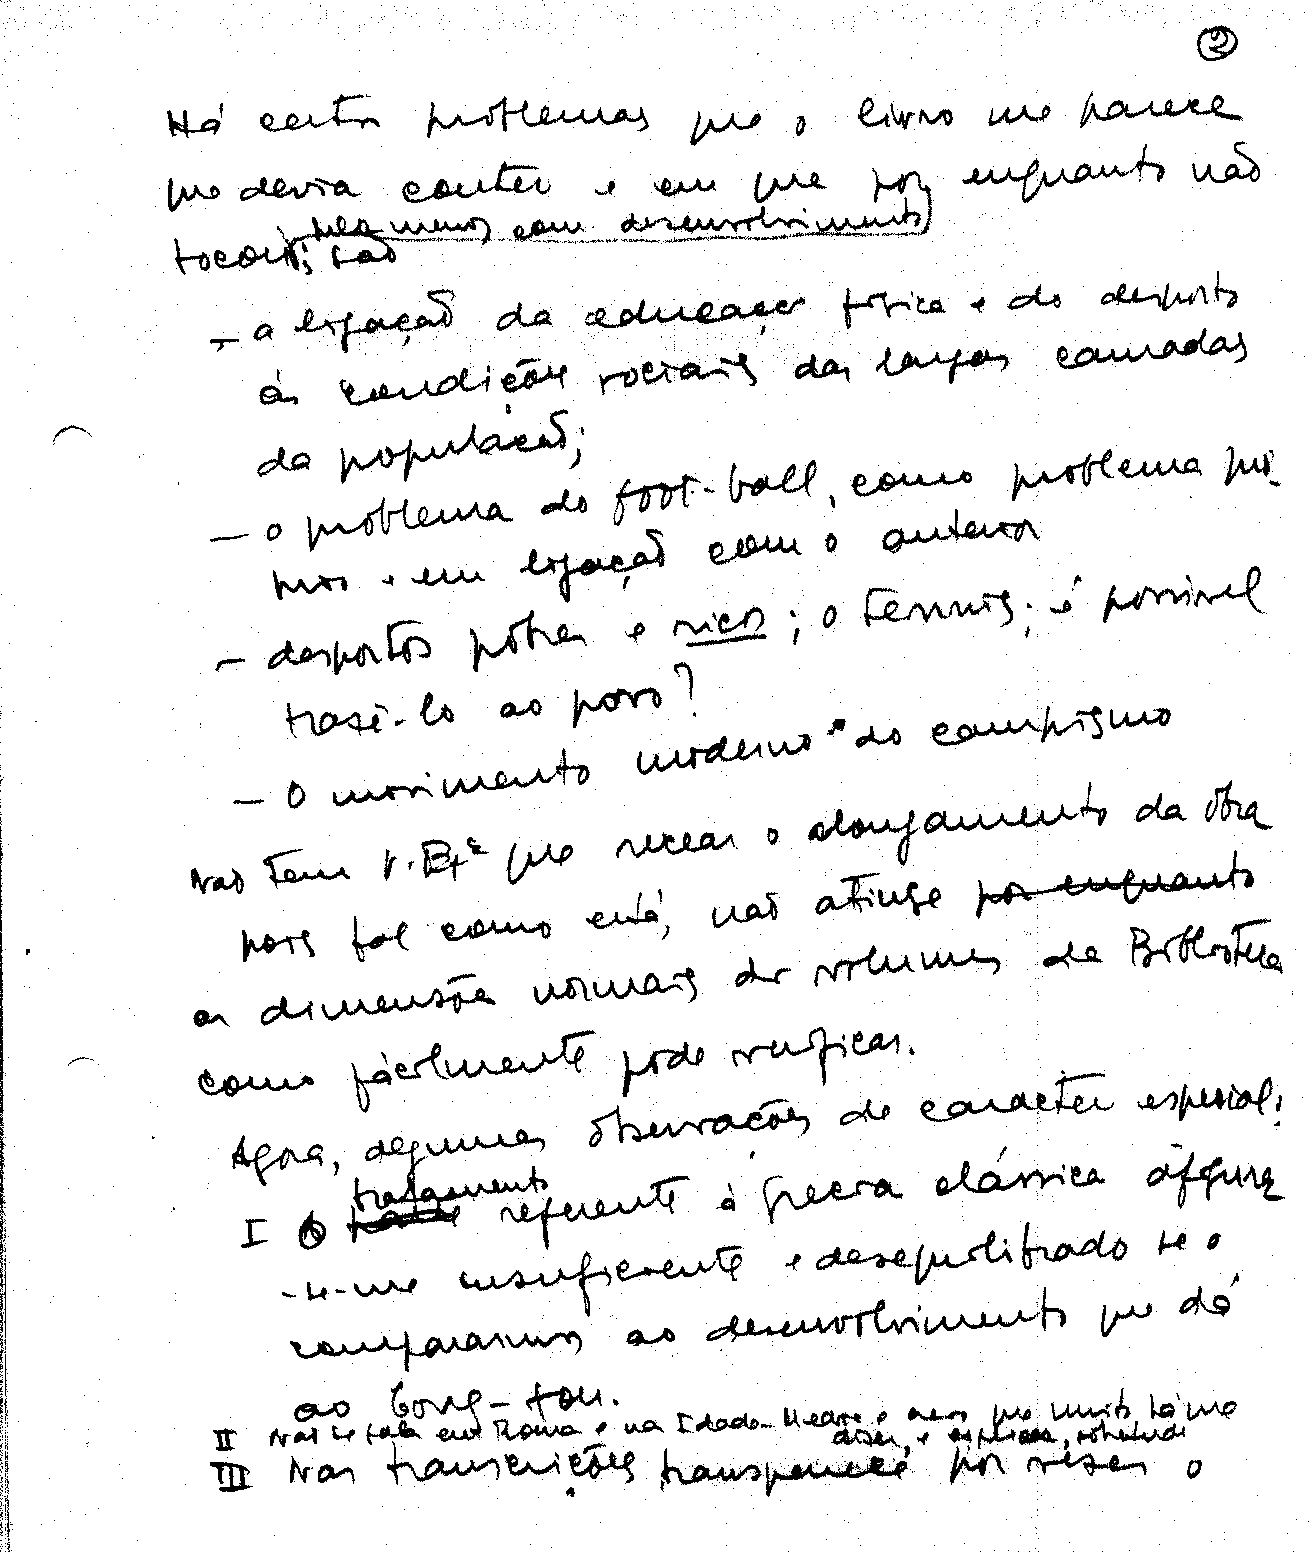 ②
Há certos problemas que o livro me parece
que devia conter e em que por enquanto não
pelo menos com desenvolvimento
tocou; são
- a ligação da educação física e do desporto
às condições sociais das largas camadas
da população;
- o problema do foot-ball, como problema pró-
prio e em ligação com o anterior
- desportos pobres e ricos; o tennis; é possível
trazê-lo ao povo?
- O movimento moderno do campismo
Não tem V. Exª que recear o alongamento da obra
pois tal como está, não atinge por enquanto
as dimensões normais dos volumes da Biblioteca
como fàcilmente pode verificar.
Agora, algumas observações de caracter especial:
tratamento
I O referente à Grécia clássica afigura
-se-me insuficiente e desequilibrado se o
compararmos ao desenvolvimento que dá
ao
II Não se fala em Roma e na Idade-Média e creio que muito há que
dizer, e
III Nas transcrições transparece por vezes o